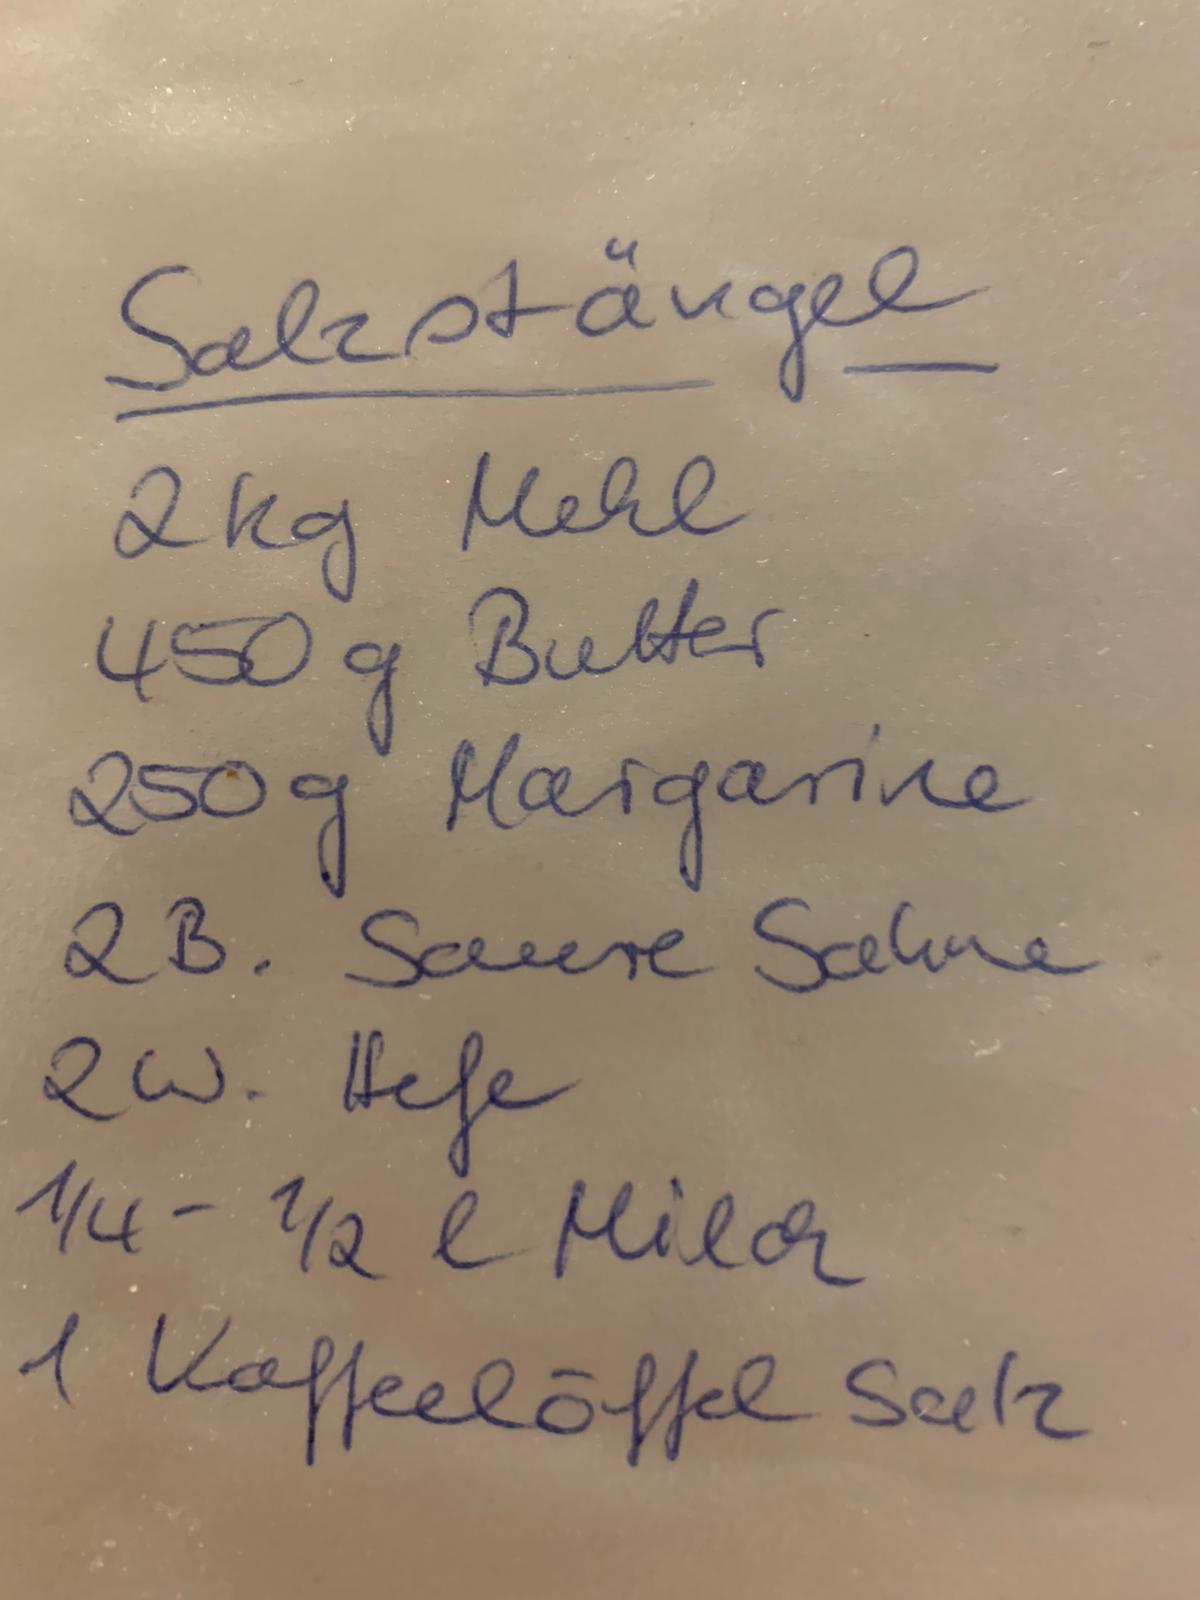 Salzstängel
2kg Mehl
450g Butter
250g Margarine
2B. Saure Sahne
2W. Hefe
1/4 - 1/2 l Milch
1 Kaffeelöffel Salz